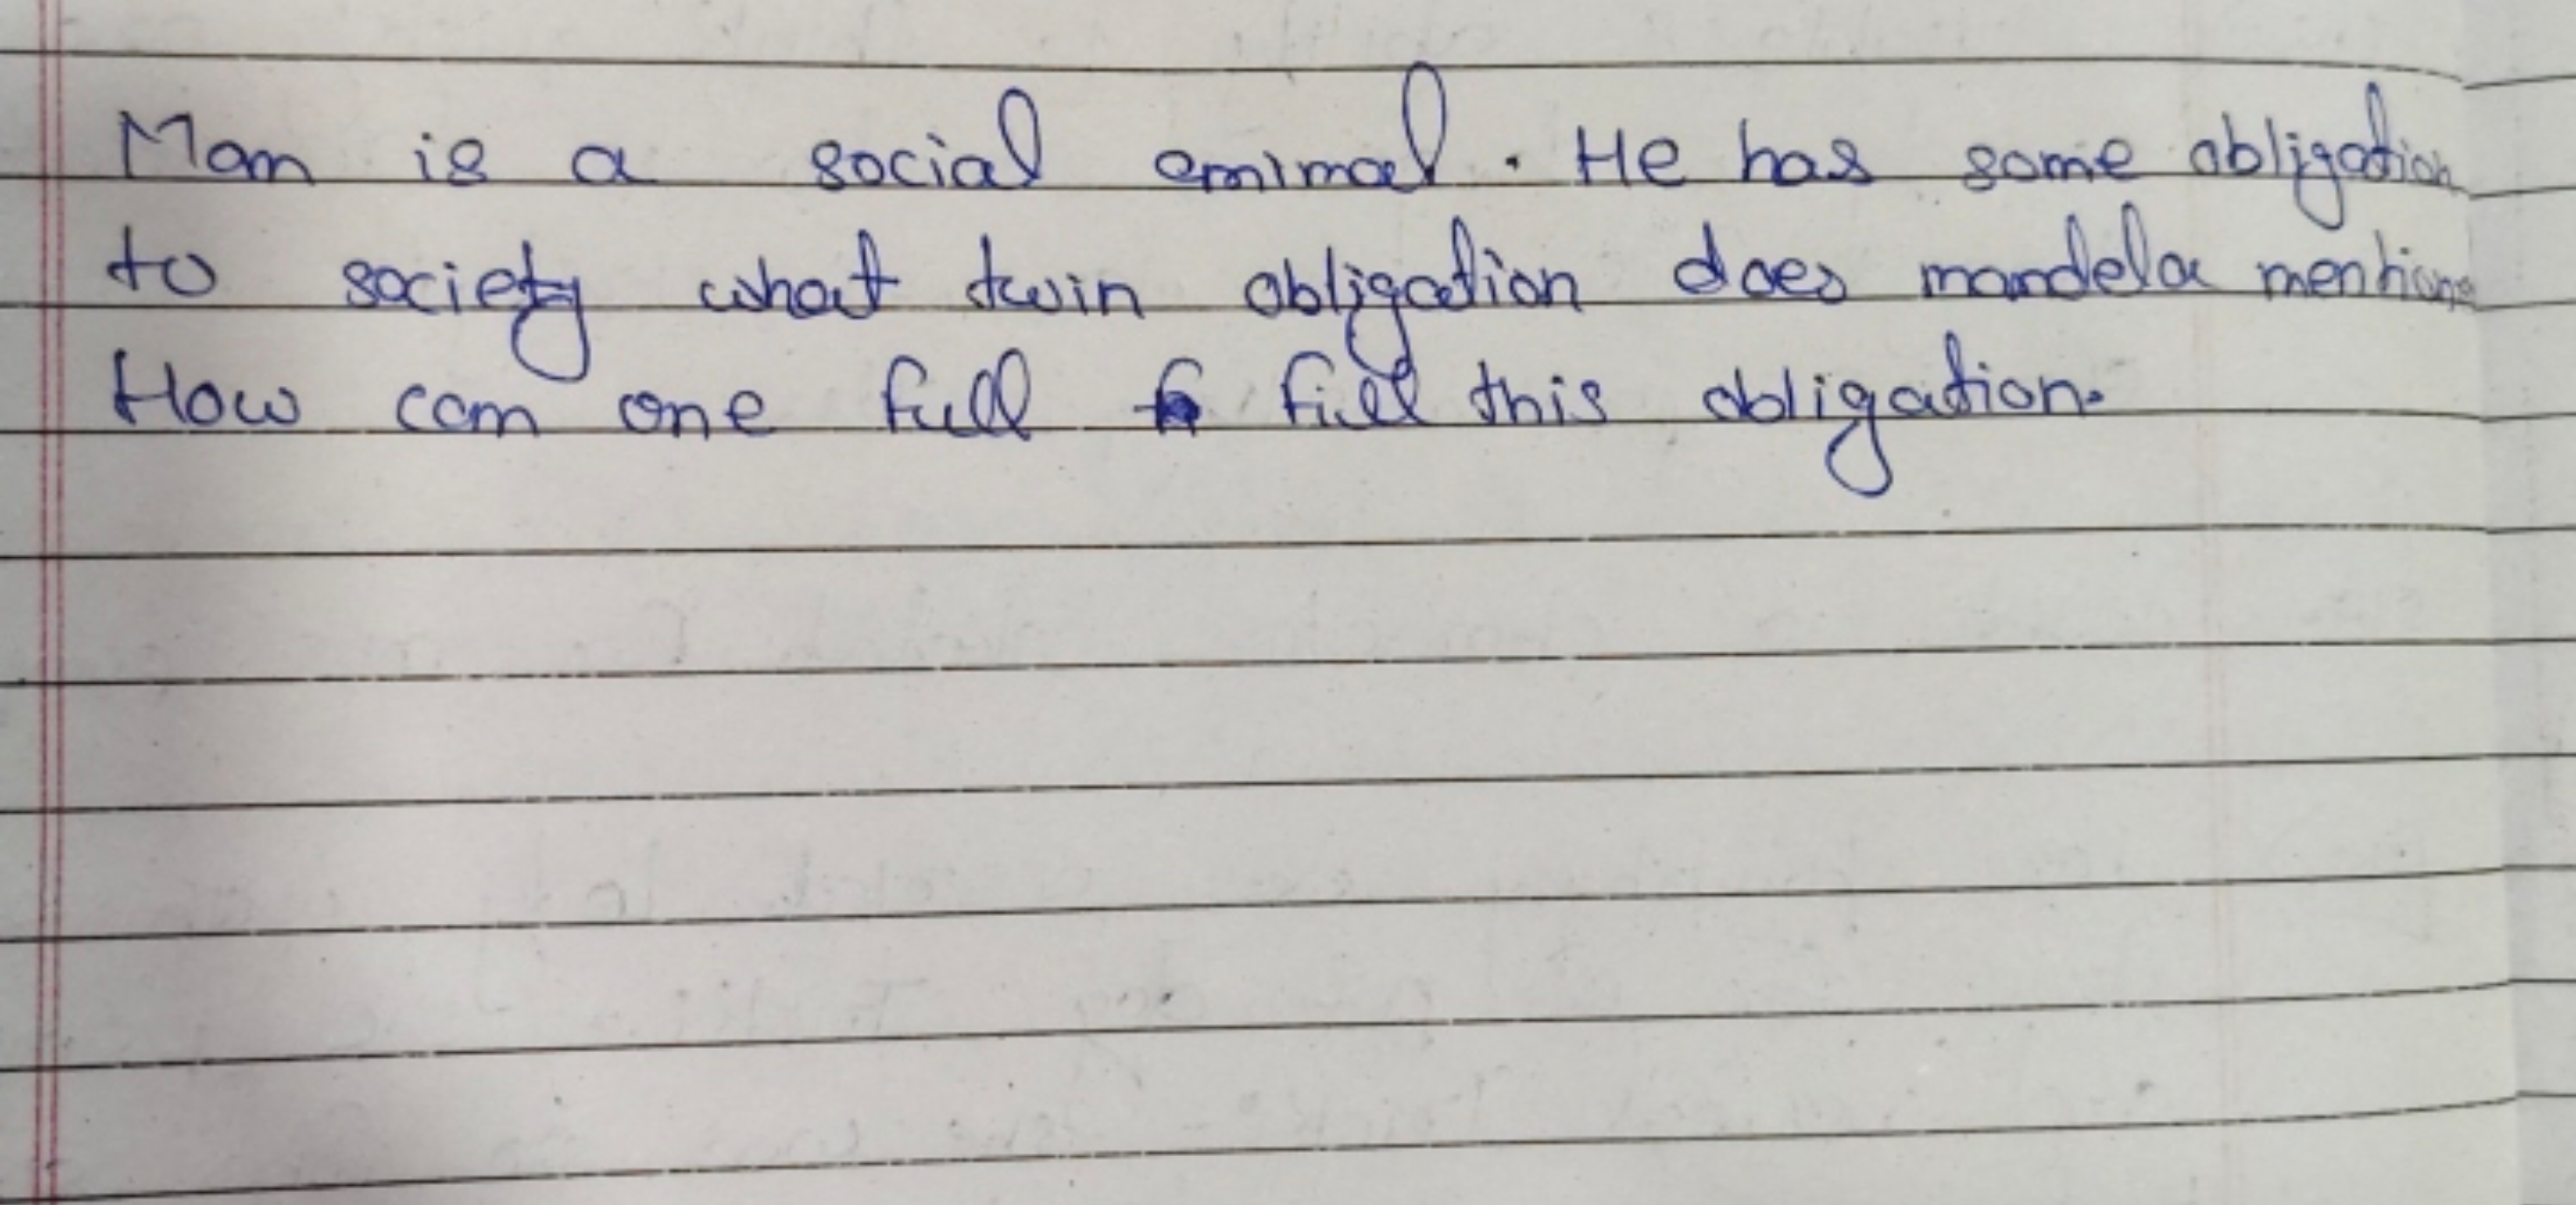 Man is a social animal. He has some obligation
to society what twin obligation does mandela mentions
How can one full fill this obligation.